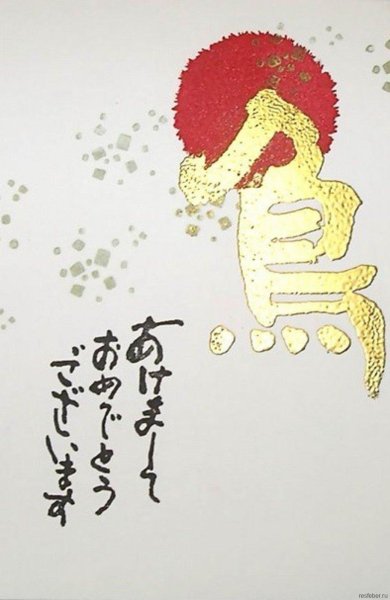 鳥
あけまして
おめでとう
ございます
resfeber.ru